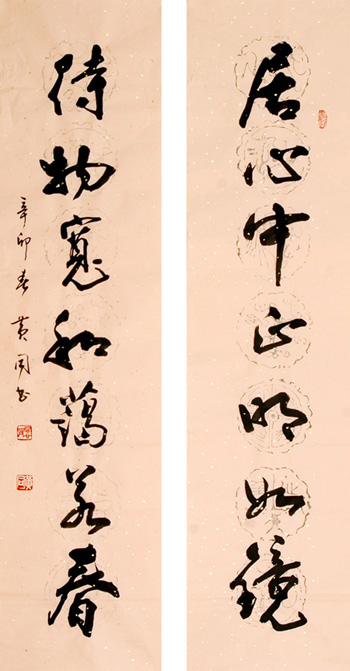 居心中正明如鏡
待物寬和藹若春
辛卯春 黄同书